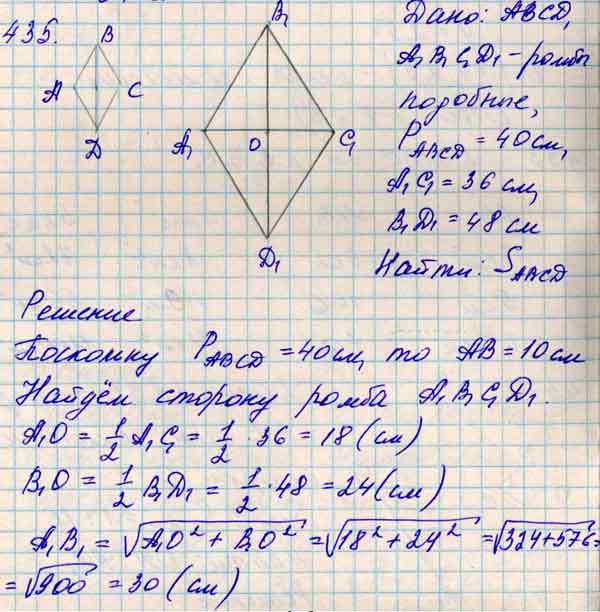 435.
B
A
C
D
B₁
A₁
O
C₁
D₁
Дано: ABCD,
A₁B₁C₁D₁ - ромбы
подобные,
P_ABCD = 40 см,
A₁C₁ = 36 см,
B₁D₁ = 48 см
Найти: S_ABCD
Решение
Поскольку P_ABCD = 40 см, то AB = 10 см
Найдём сторону ромба A₁B₁C₁D₁.
A₁O = 1/2 A₁C₁ = 1/2 · 36 = 18 (см)
B₁O = 1/2 B₁D₁ = 1/2 · 48 = 24 (см)
A₁B₁ = √(A₁O² + B₁O²) = √(18² + 24²) = √(324+576) =
= √900 = 30 (см)